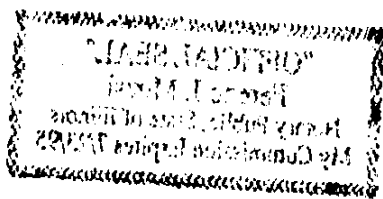 "OFFICIAL SEAL"
Notary Public, State of Illinois
My Commission Expires 7/23/95